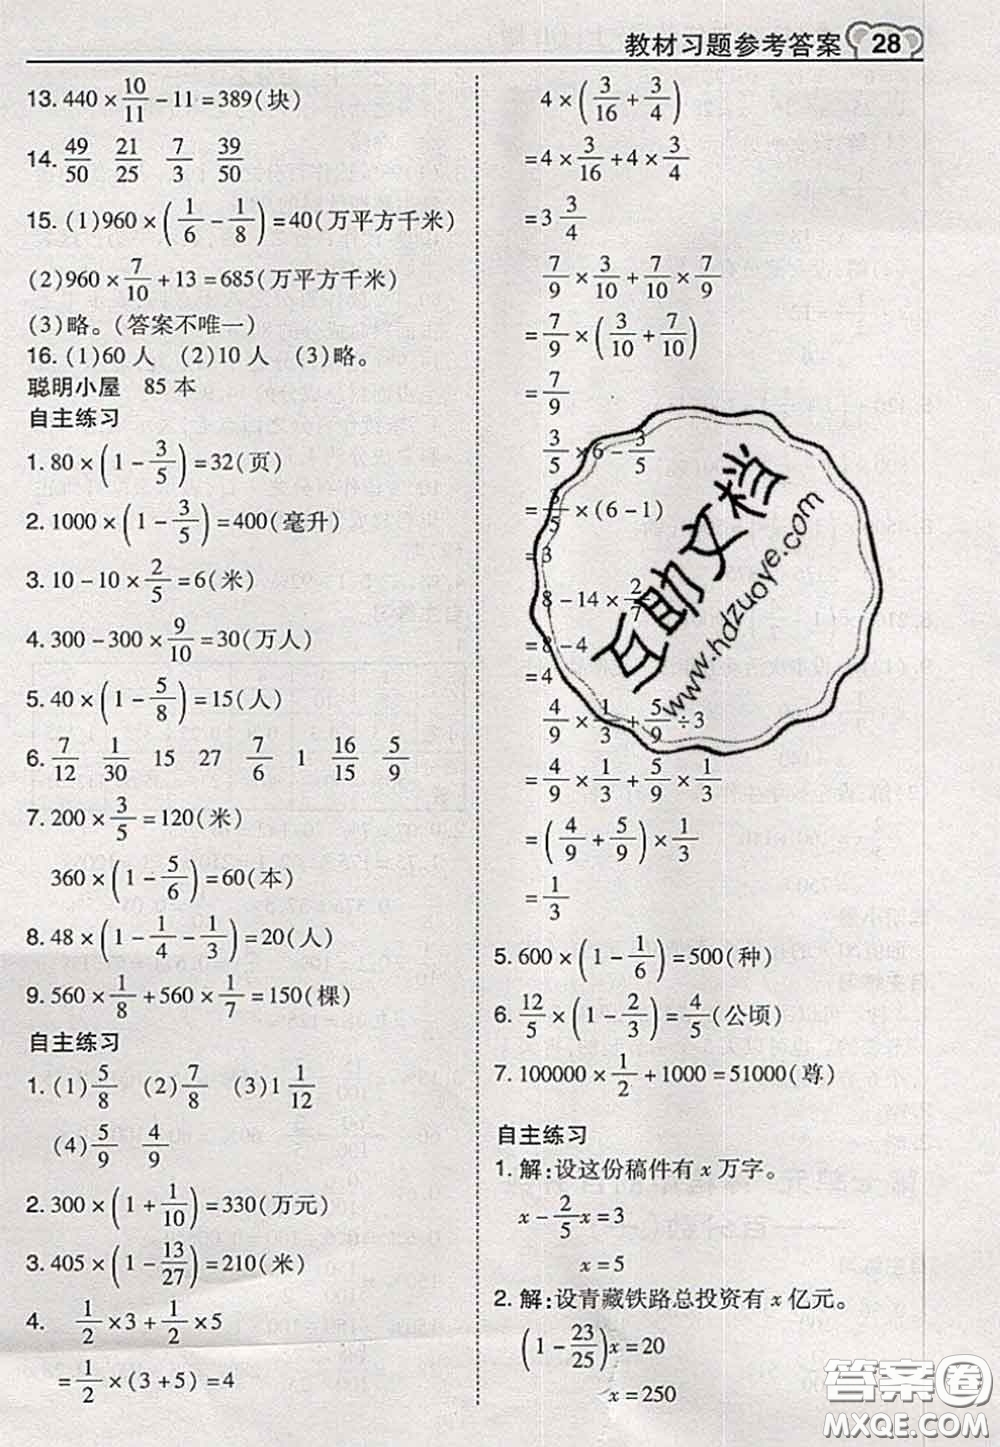 教材习题参考答案 28
13. 440×10/11-11=389(块)
14. 49/50 21/25 7/3 39/50
15. (1)960×(1/6-1/8)=40(万平方千米)
(2)960×7/10+13=685(万平方千米)
(3)略。(答案不唯一)
16. (1)60人 (2)10人 (3)略。
聪明小屋 85本
自主练习
1. 80×(1-3/5)=32(页)
2. 1000×(1-3/5)=400(毫升)
3. 10-10×2/5=6(米)
4. 300-300×9/10=30(万人)
5. 40×(1-5/8)=15(人)
6. 7/12 1/30 15 27 7/6 1 16/15 5/9
7. 200×3/5=120(米)
360×(1-5/6)=60(本)
8. 48×(1-1/4-1/3)=20(人)
9. 560×1/8+560×1/7=150(棵)
自主练习
1. (1)5/8 (2)7/8 (3)1 1/12
(4)5/9 4/9
2. 300×(1+1/10)=330(万元)
3. 405×(1-13/27)=210(米)
4. 1/2×3+1/2×5
=1/2×(3+5)=4
4×(3/16+3/4)
=4×3/16+4×3/4
=3 3/4
7/9×3/10+7/10×7/9
=7/9×(3/10+7/10)
=7/9
3/5×6-3/5
=3/5×(6-1)
=3
8-14×2/7
=8-4
=4
4/9×1/3+5/9÷3
=4/9×1/3+5/9×1/3
=(4/9+5/9)×1/3
=1/3
5. 600×(1-1/6)=500(种)
6. 12/5×(1-2/3)=4/5(公顷)
7. 100000×1/2+1000=51000(尊)
自主练习
1. 解:设这份稿件有x万字。
x-2/5x=3
x=5
2. 解:设青藏铁路总投资有x亿元。
(1-23/25)x=20
x=250
互助文档
www.hdzuoye.com
答案圈
MXQE.COM